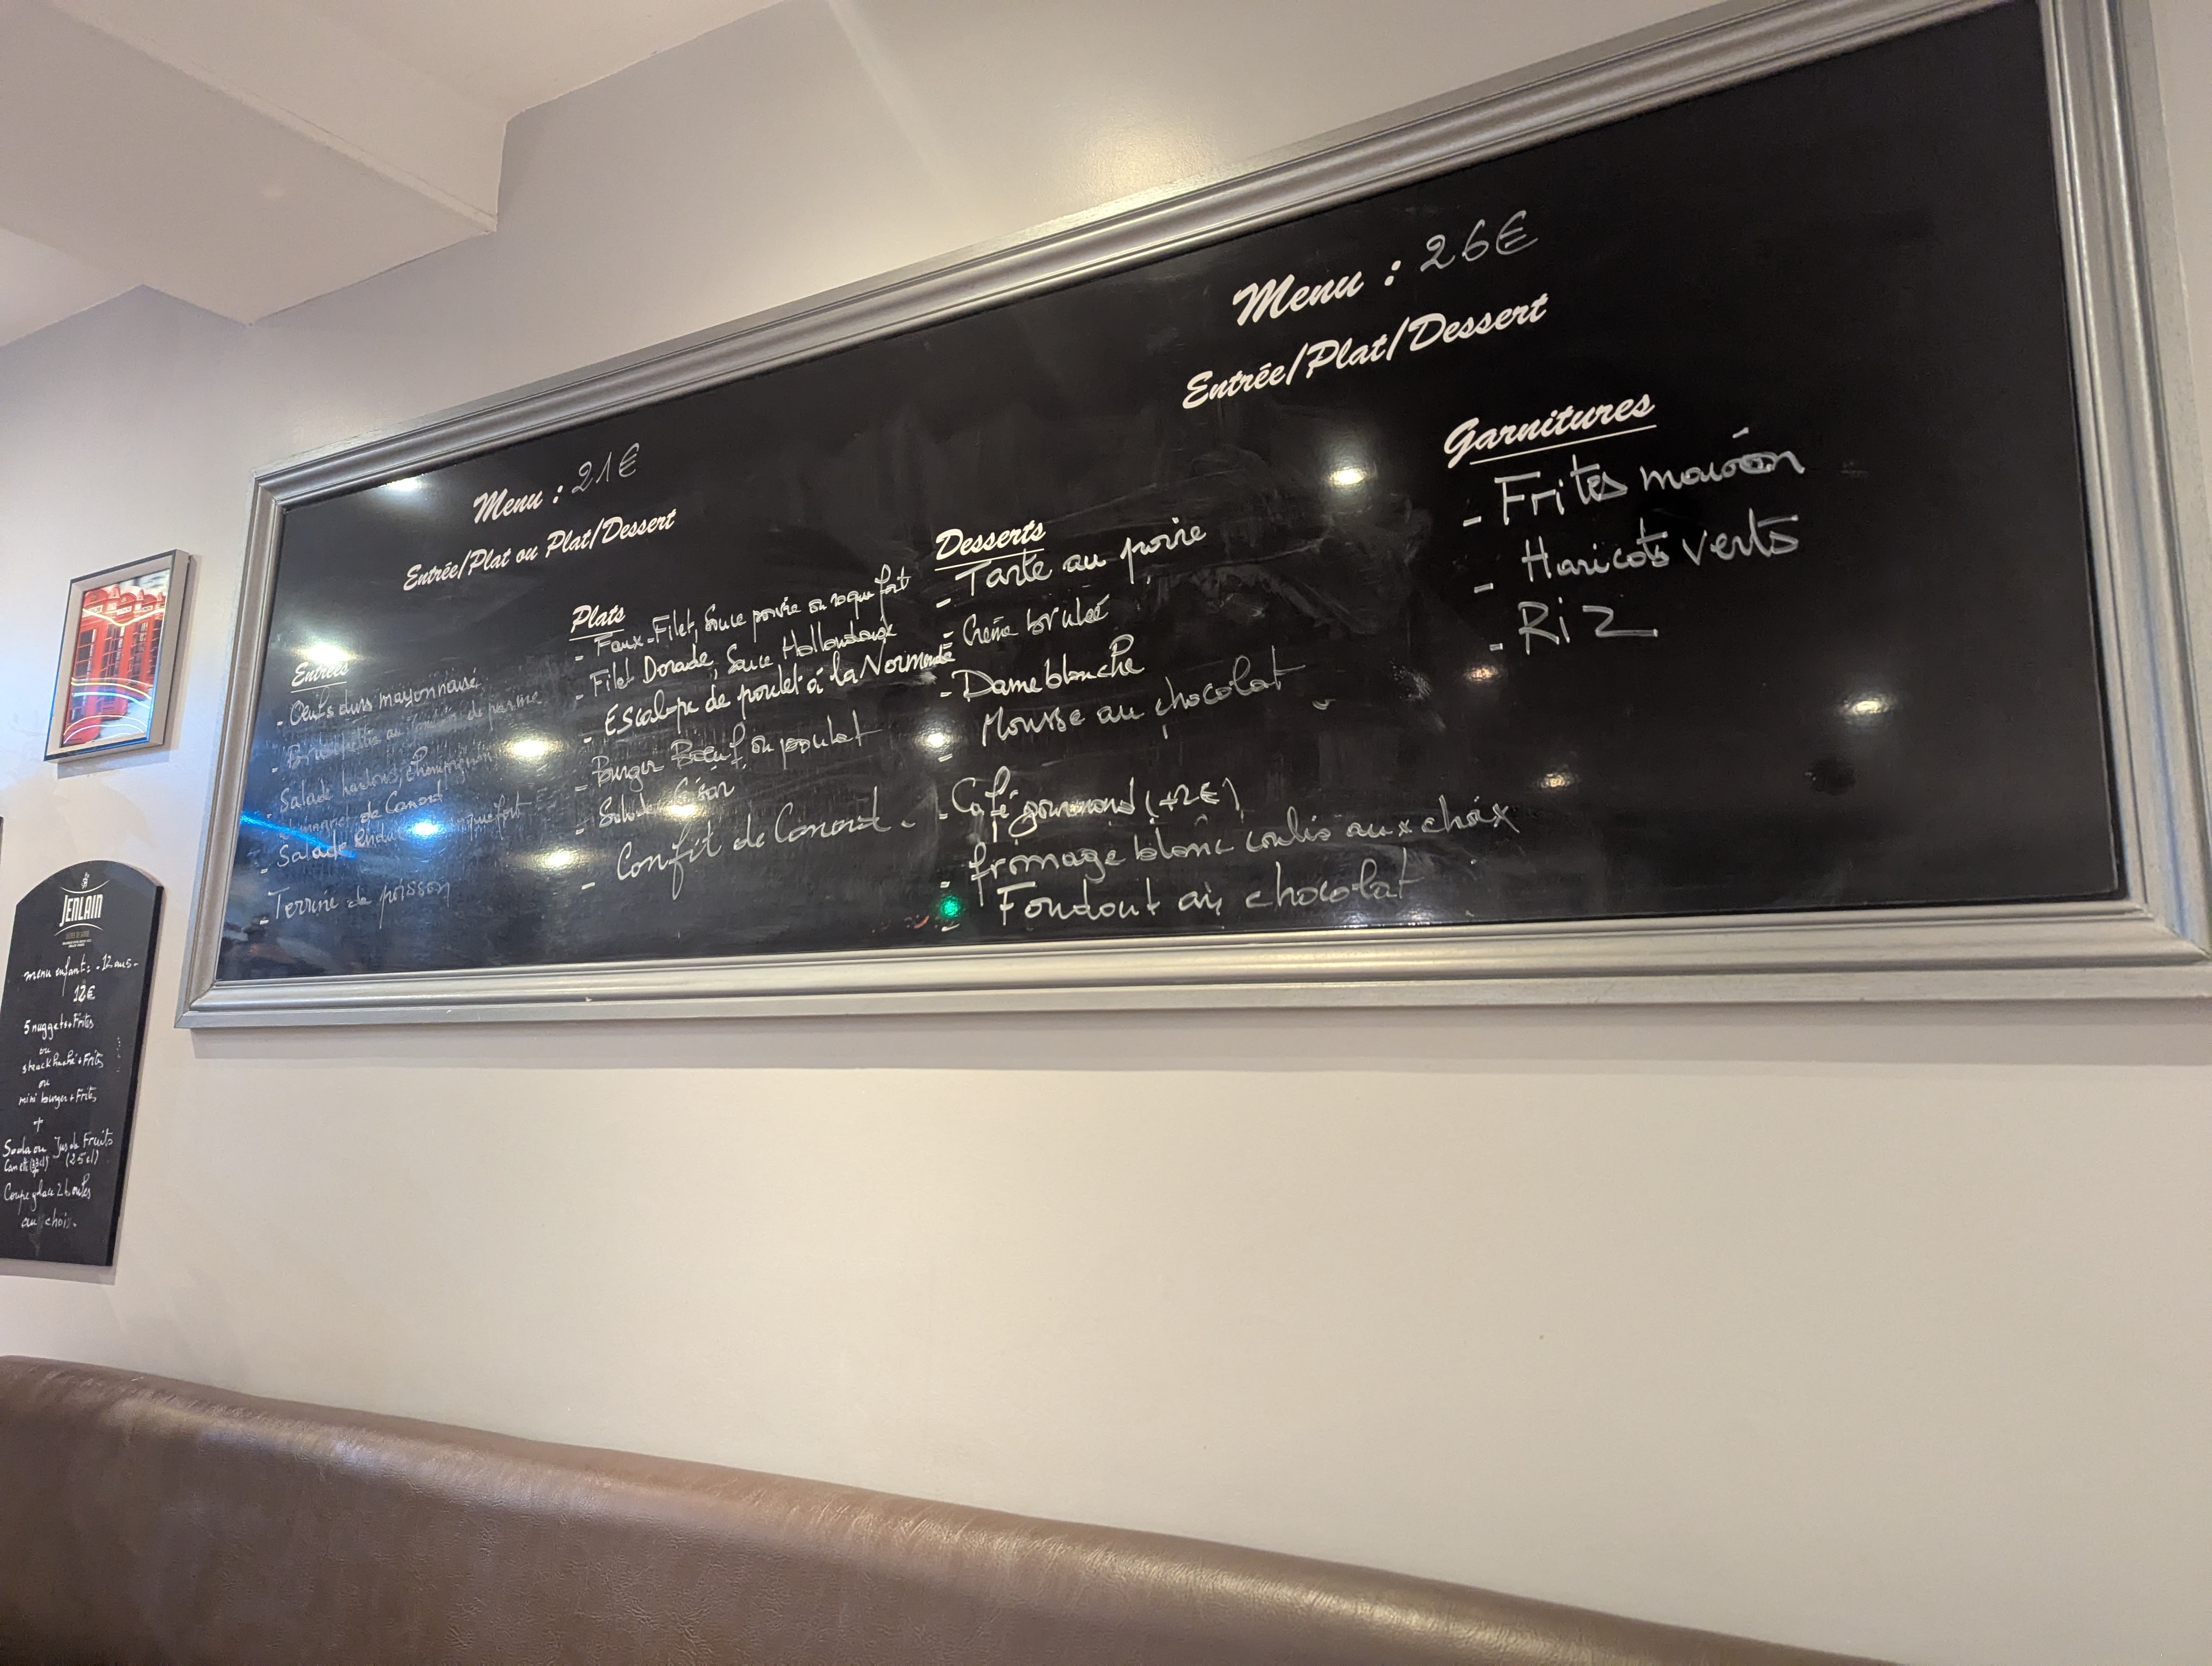 Menu : 21€
Entrée/Plat ou Plat/Dessert
Menu : 26€
Entrée/Plat/Dessert
Entrées
- Oeufs durs mayonnaise
- au Jambon de parme
- Salade haricots champignon
- magret de Canard
- Salade endive roquefort
- Terrine de poisson
Plats
- Faux-Filet, Sauce poivre ou roquefort
- Filet Dorade, Sauce Hollandaise
- Escalope de poulet à la Normande
- Burger Boeuf ou poulet
- Salade César
- Confit de Canard.
Desserts
- Tarte au poire
- Crème brulée
- Dame blanche
- Mousse au chocolat
- Café gourmand (+2€)
- fromage blanc coulis aux choix
- Fondant au chocolat
Garnitures
- Frites maison
- Haricots verts
- Riz
JENLAIN
menu enfant: -12 ans-
12€
5 nuggets+Frites
ou
steack haché+Frites
ou
mini burger+Frites
+
Soda ou Jus de Fruits
Canette (33cl) (25cl)
Coupe glace 2 boules
au choix.